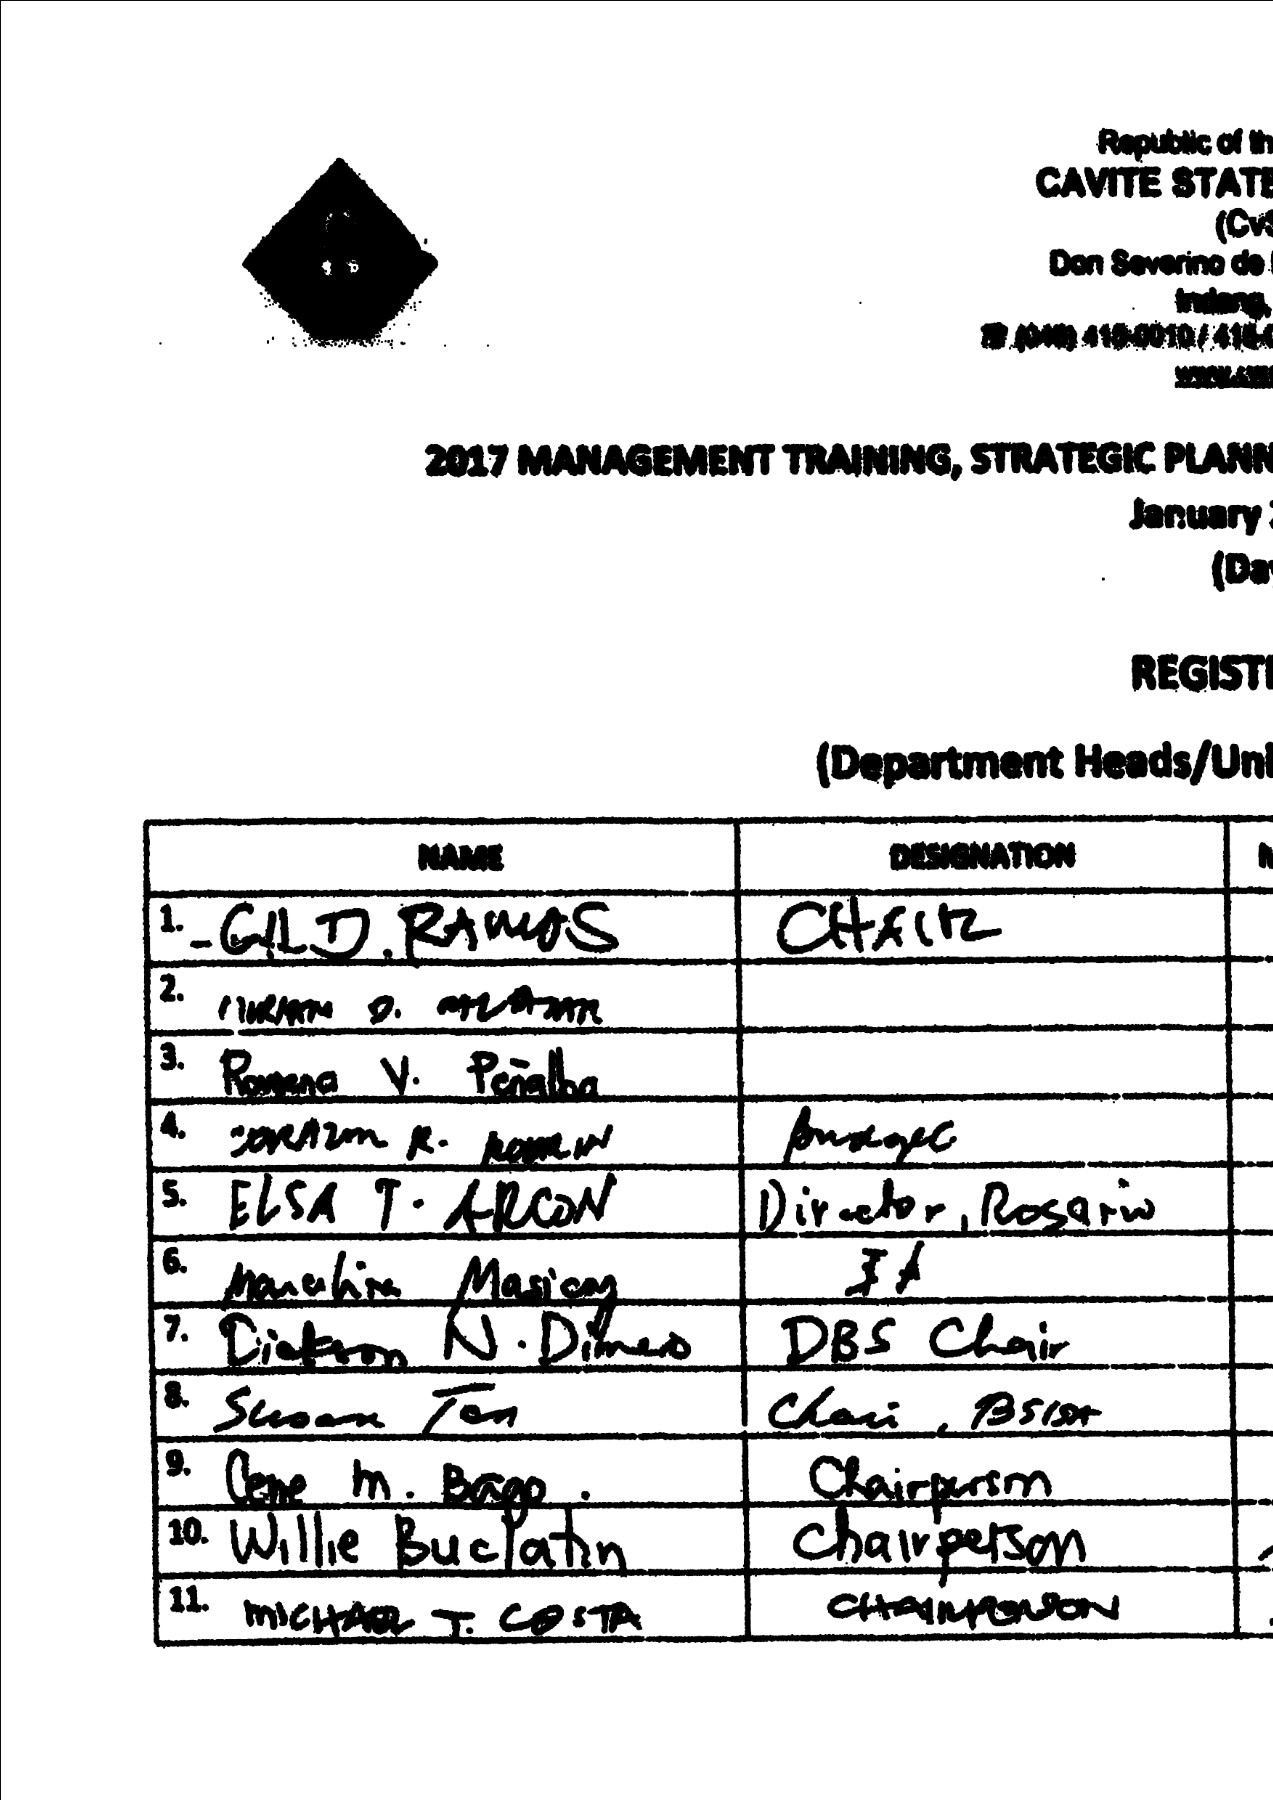 Republic of th
CAVITE STATE
(CvS
Don Severino de
Indang,
(046) 415-0010 / 415-0
www.
2017 MANAGEMENT TRAINING, STRATEGIC PLANN
January
(Da
REGIST
(Department Heads/Uni
NAME DESIGNATION
1. GIL D. RAMOS CHAIR
2. D.
3. Romena V. Peñalba
4. CORAZON R. Budget
5. ELSA T. ARCON Director, Rosario
6. Masicay IA
7. Dickson N. Dimero DBS Chair
8. Susan Tan Chair,
9. Cene M. Bago. Chairperson
10. Willie Buclatin Chairperson
11. MICHAEL T. COSTA CHAIRPERSON